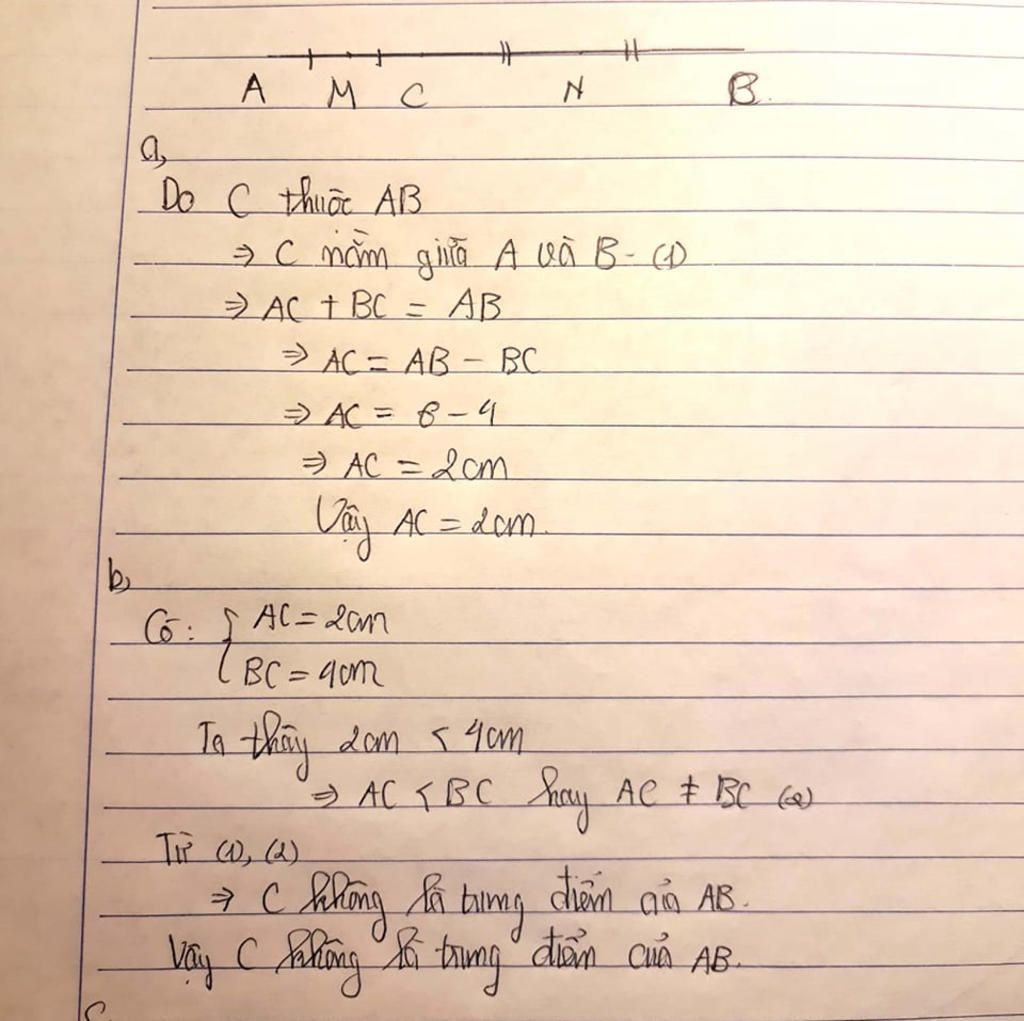 A M C N B.
a,
Do C thuộc AB
⇒ C nằm giữa A và B - (1)
⇒ AC + BC = AB
⇒ AC = AB - BC
⇒ AC = 6 - 4
⇒ AC = 2cm
Vậy AC = 2cm.
b,
Có: { AC = 2cm
BC = 4cm
Ta thấy 2cm < 4cm
⇒ AC < BC hay AC ≠ BC (2)
Từ (1), (2)
⇒ C không là trung điểm của AB.
Vậy C không là trung điểm của AB.